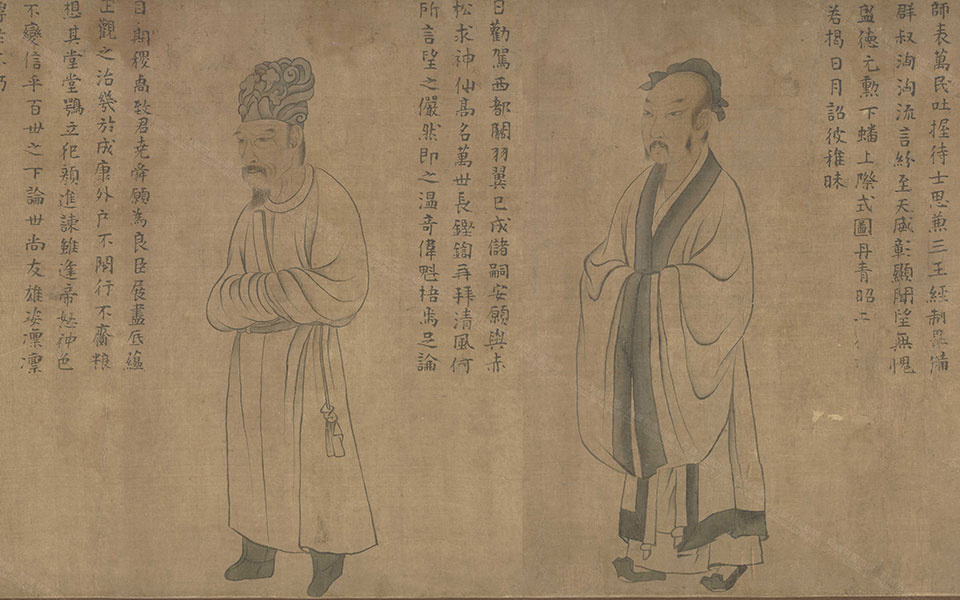 師表萬民吐握待士思蒹三王經制㒺備
群叔洶洶流言紛至天威彰顯開陞無愧
盛德元勳下蟠上際式圖丹青昭二
若揭日月詔彼稚昧
日勸駕西都關羽翼已成儲嗣安願與赤
松求神仙高名萬世長鏗鍧再拜清風何
所言望之儼然即之溫奇偉魁梧焉足論
日期稷卨致君堯舜願為良臣展盡底蘊
正觀之治幾於成康外户不閉行不齎粮
想其堂堂鶚立犯顏進諫雖逢帝怒神色
不變信乎百世之下論世尚友雄姿凛凛